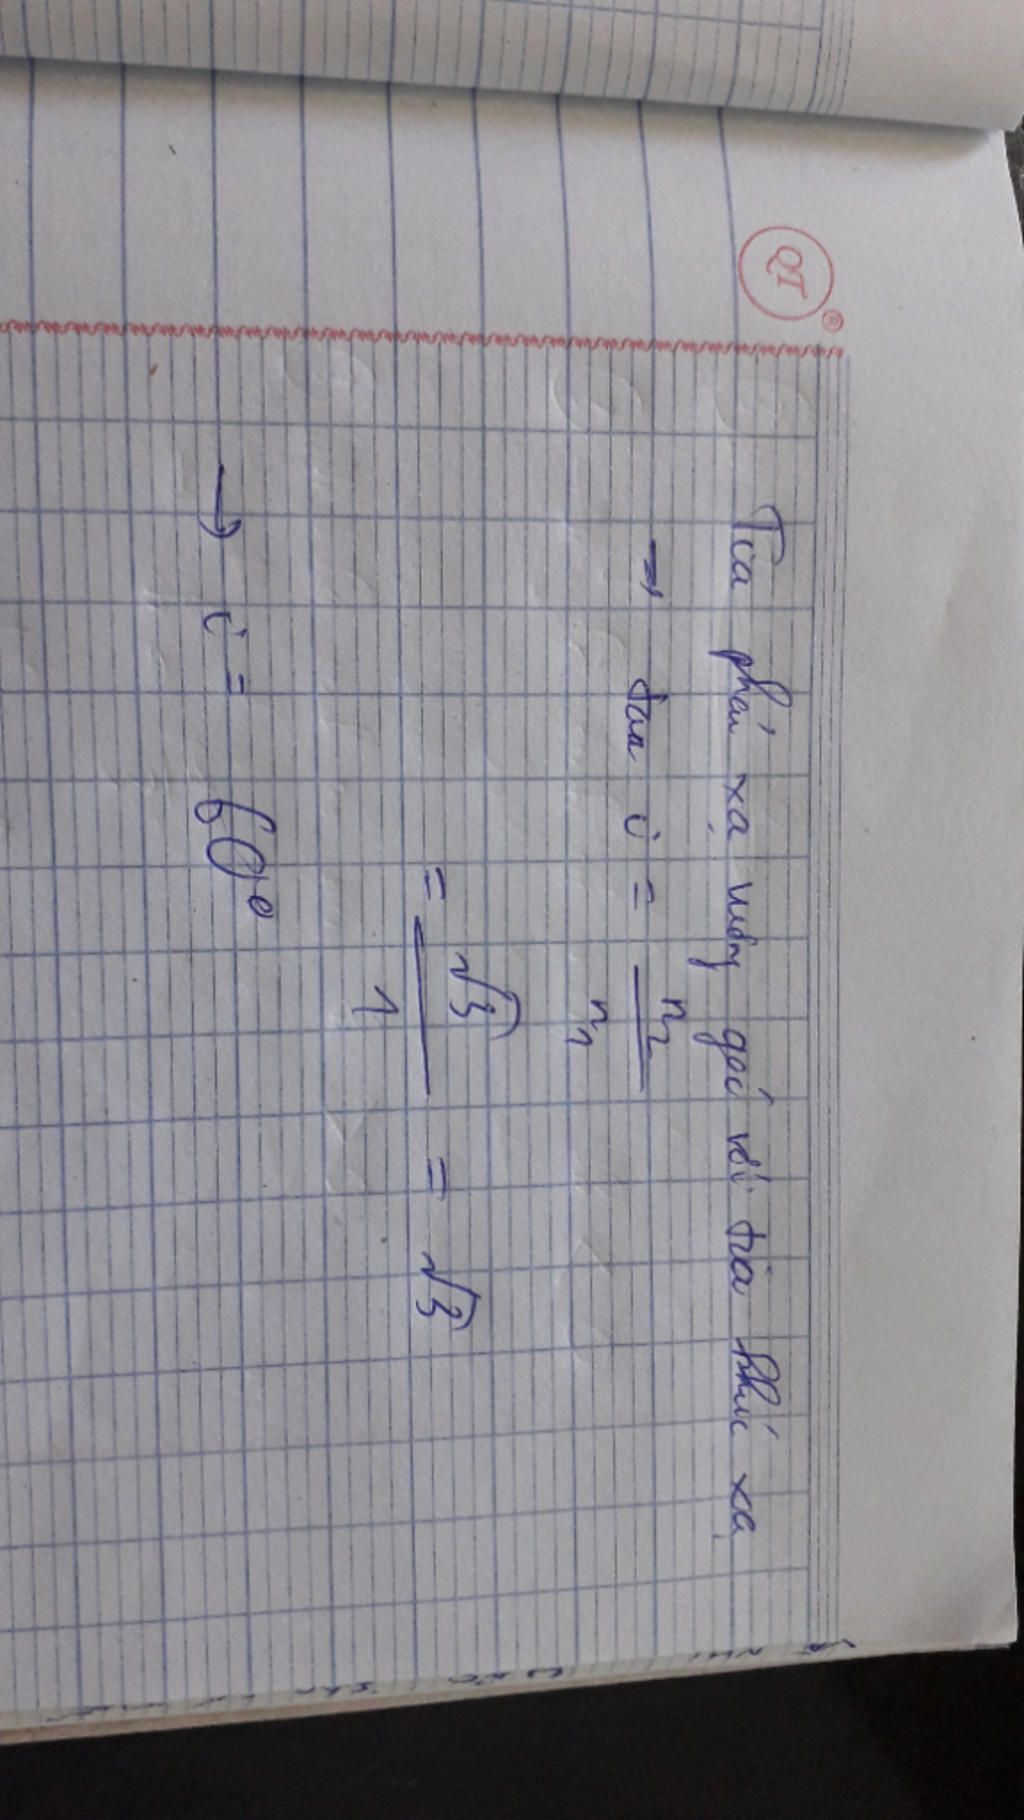 QT ®
Tia phản xạ vuông góc với tia khúc xạ
→ tan i = n₂ / n₁
= √3 / 1 = √3
→ i = 60°